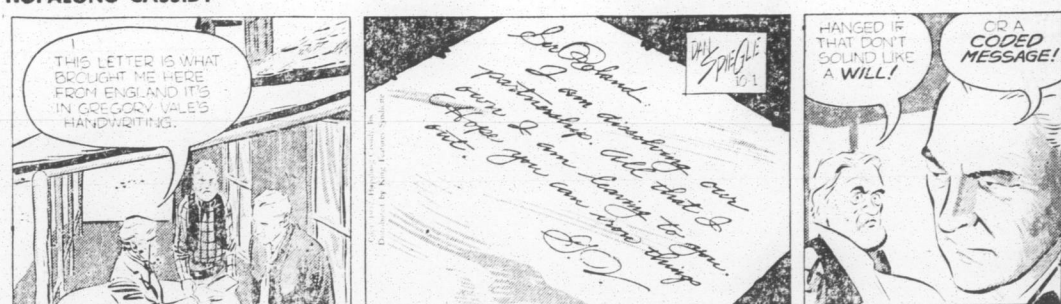 HOPALONG CASSIDY
THIS LETTER IS WHAT
BROUGHT ME HERE
FROM ENGLAND IT'S
IN GREGORY VALE'S
HANDWRITING.
Sir Roland:
I am dissolving our
partnership. All that I
own I am leaving to you.
Hope you can iron things
out.
G.V.
DAN
SPIEGLE
10-1
HANGED IF
THAT DON'T
SOUND LIKE
A WILL!
OR A
CODED
MESSAGE!